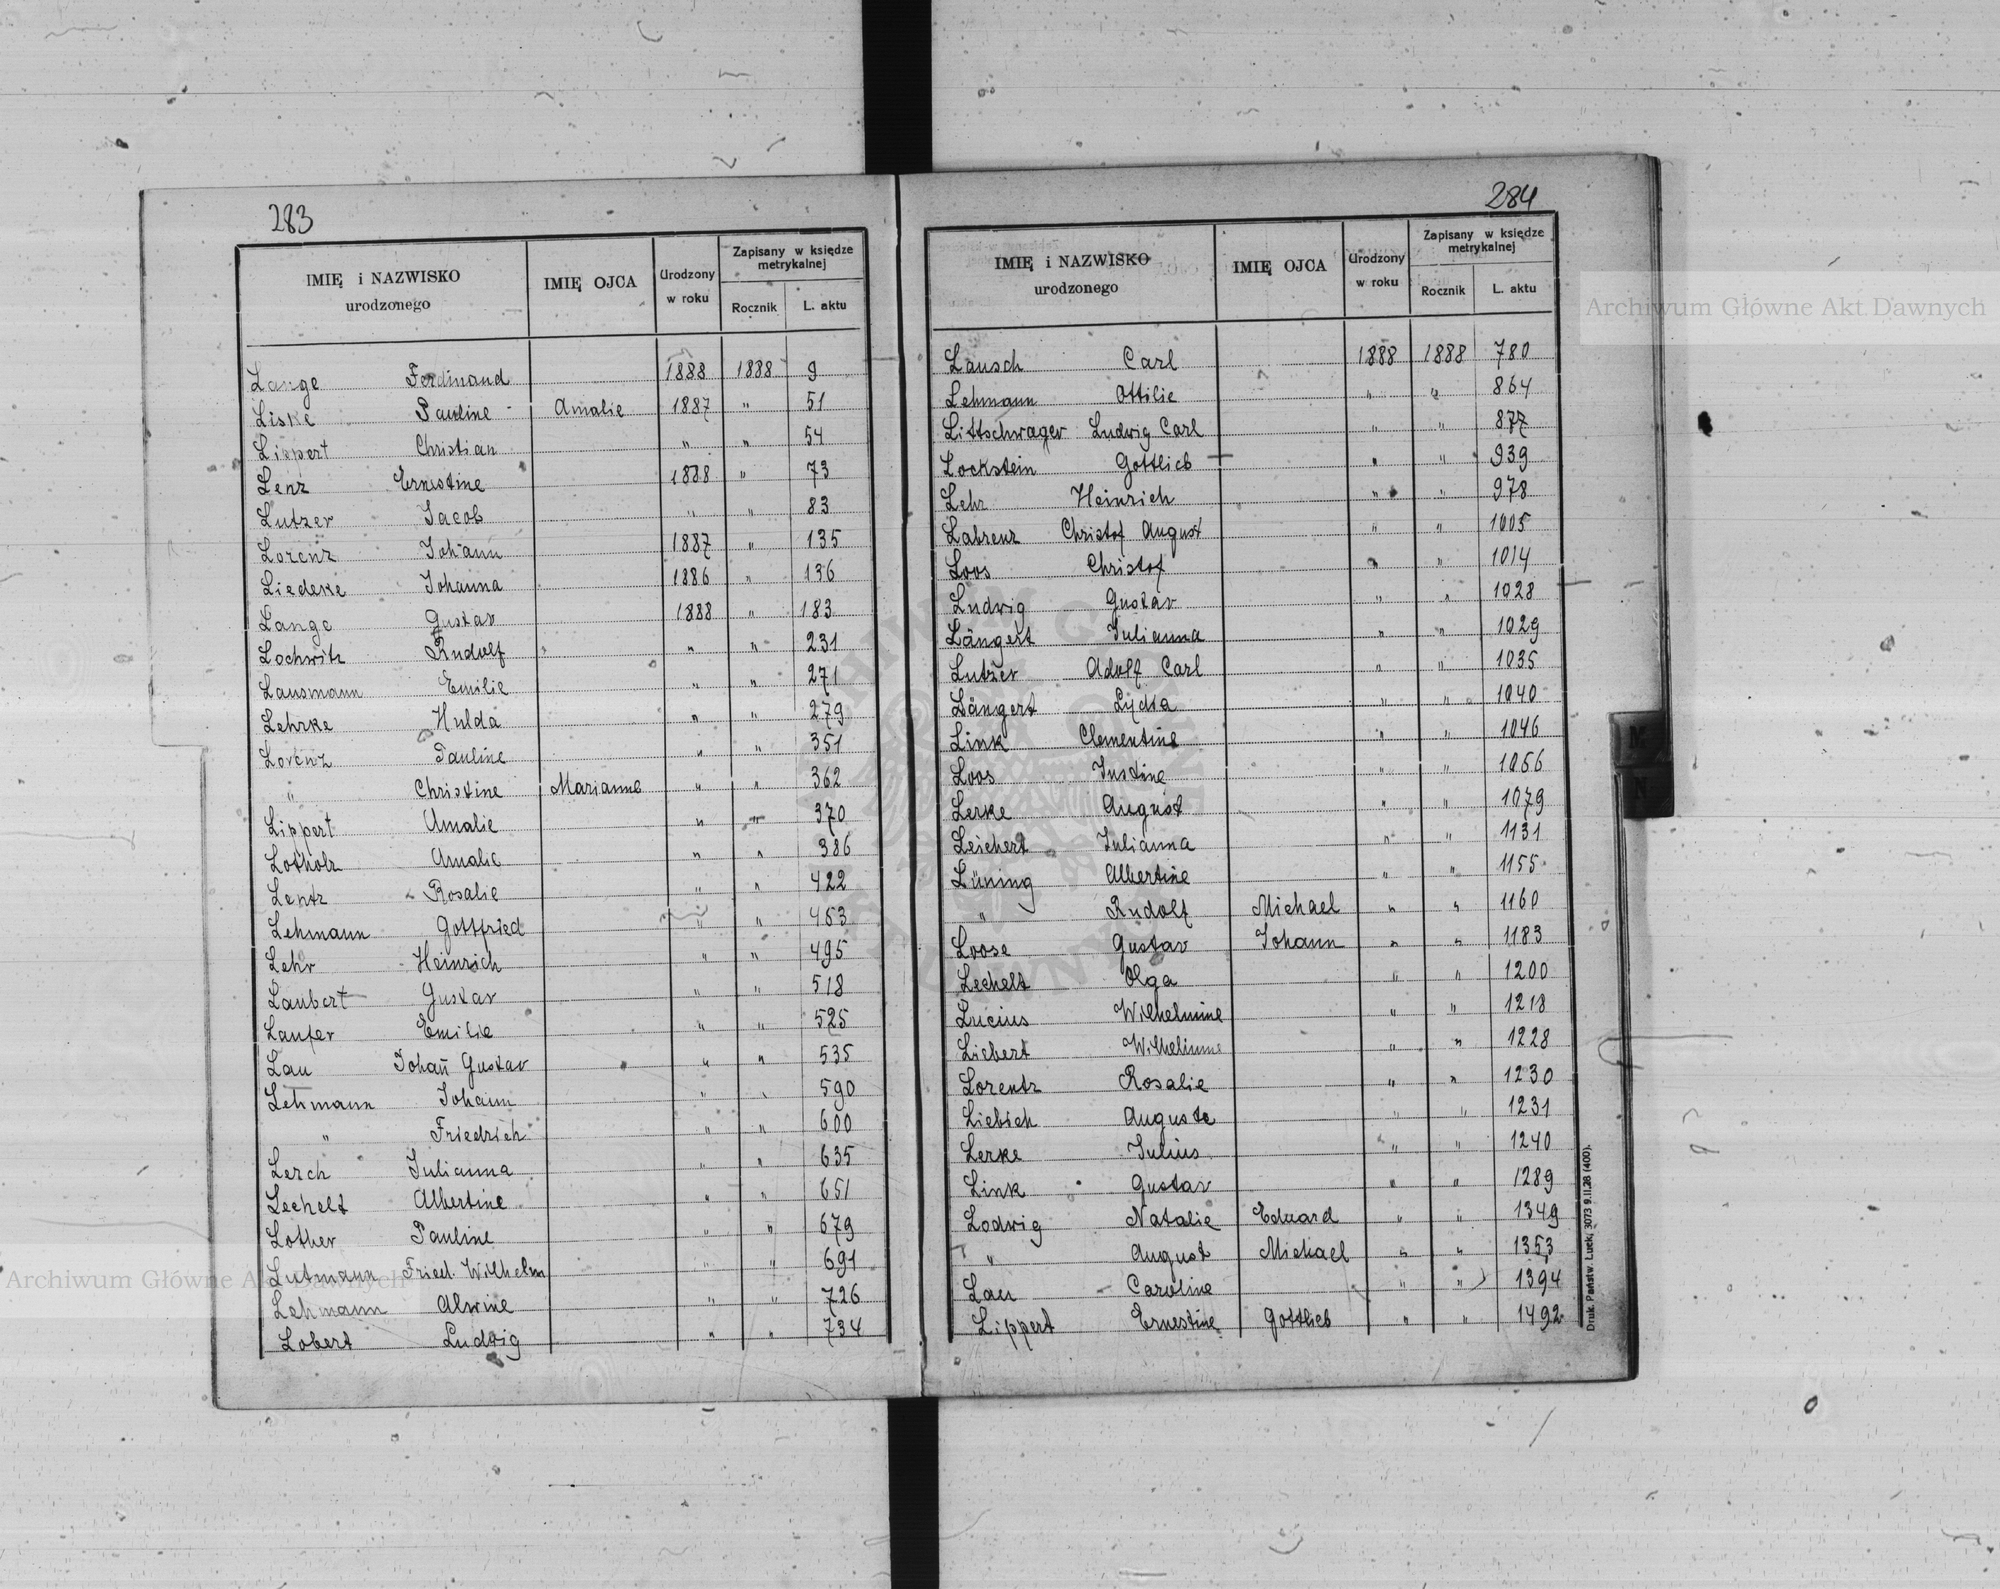 283
IMIĘ i NAZWISKO urodzonego IMIĘ OJCA Urodzony w roku Zapisany w księdze metrykalnej Rocznik L. aktu
Lange Ferdinand 1888 1888 9
Liske Pauline Amalie 1887 " 51
Lippert Christian " " 54
Lenz Ernestine 1888 " 73
Lutzer Jacob " " 83
Lorenz Johann 1887 " 135
Liedeke Johanna 1886 " 136
Lange Gustav 1888 " 183
Lochwitz Rudolf " " 231
Lausmann Emilie " " 271
Lehrke Hulda " " 279
Lorenz Pauline " " 351
" Christine Marianne " " 362
Lippert Amalie " " 370
Lotholz Amalie " " 386
Lentz Rosalie " " 422
Lehmann Gottfried " " 453
Lehr Heinrich " " 495
Laubert Gustav " " 518
Laufer Emilie " " 525
Lau Johañ Gustav " " 535
Lehmann Johann " " 590
" Friedrich " " 600
Lerch Julianna " " 635
Lechelt Albertine " " 651
Lother Pauline " " 679
Lutmann Fried. Wilhelm " " 691
Lehmann Alwine " " 726
Lobert Ludwig " " 734
284
IMIĘ i NAZWISKO urodzonego IMIĘ OJCA Urodzony w roku Zapisany w księdze metrykalnej Rocznik L. aktu
Lausch Carl 1888 1888 780
Lehmann Ottilie " " 864
Littschwager Ludwig Carl " " 877
Lockstein Gottlieb " " 939
Lehr Heinrich " " 978
Labrenz Christof August " " 1005
Loos Christof " " 1014
Ludwig Gustav " " 1028
Längert Julianna " " 1029
Lutzer Adolf Carl " " 1035
Längert Lydia " " 1040
Link Clementine " " 1046
Loos Justine " " 1056
Lerke August " " 1079
Leichert Julianna " " 1131
Lüning Albertine " " 1155
" Rudolf Michael " " 1160
Loose Gustav Johann " " 1183
Lechelt Olga " " 1200
Lucius Wilhelmine " " 1218
Liebert Wilhelimne " " 1228
Lorentz Rosalie " " 1230
Liebich Auguste " " 1231
Lerke Julius " " 1240
Link Gustav " " 1289
Lodwig Natalie Eduard " " 1349
" August Michael " " 1353
Lau Caroline " " 1394
Lippert Ernestine Gottlieb " " 1492
Druk. Państw. Łuck, 3073 9.II.28 (400).
Archiwum Główne Akt Dawnych
Archiwum Główne Akt Dawnych